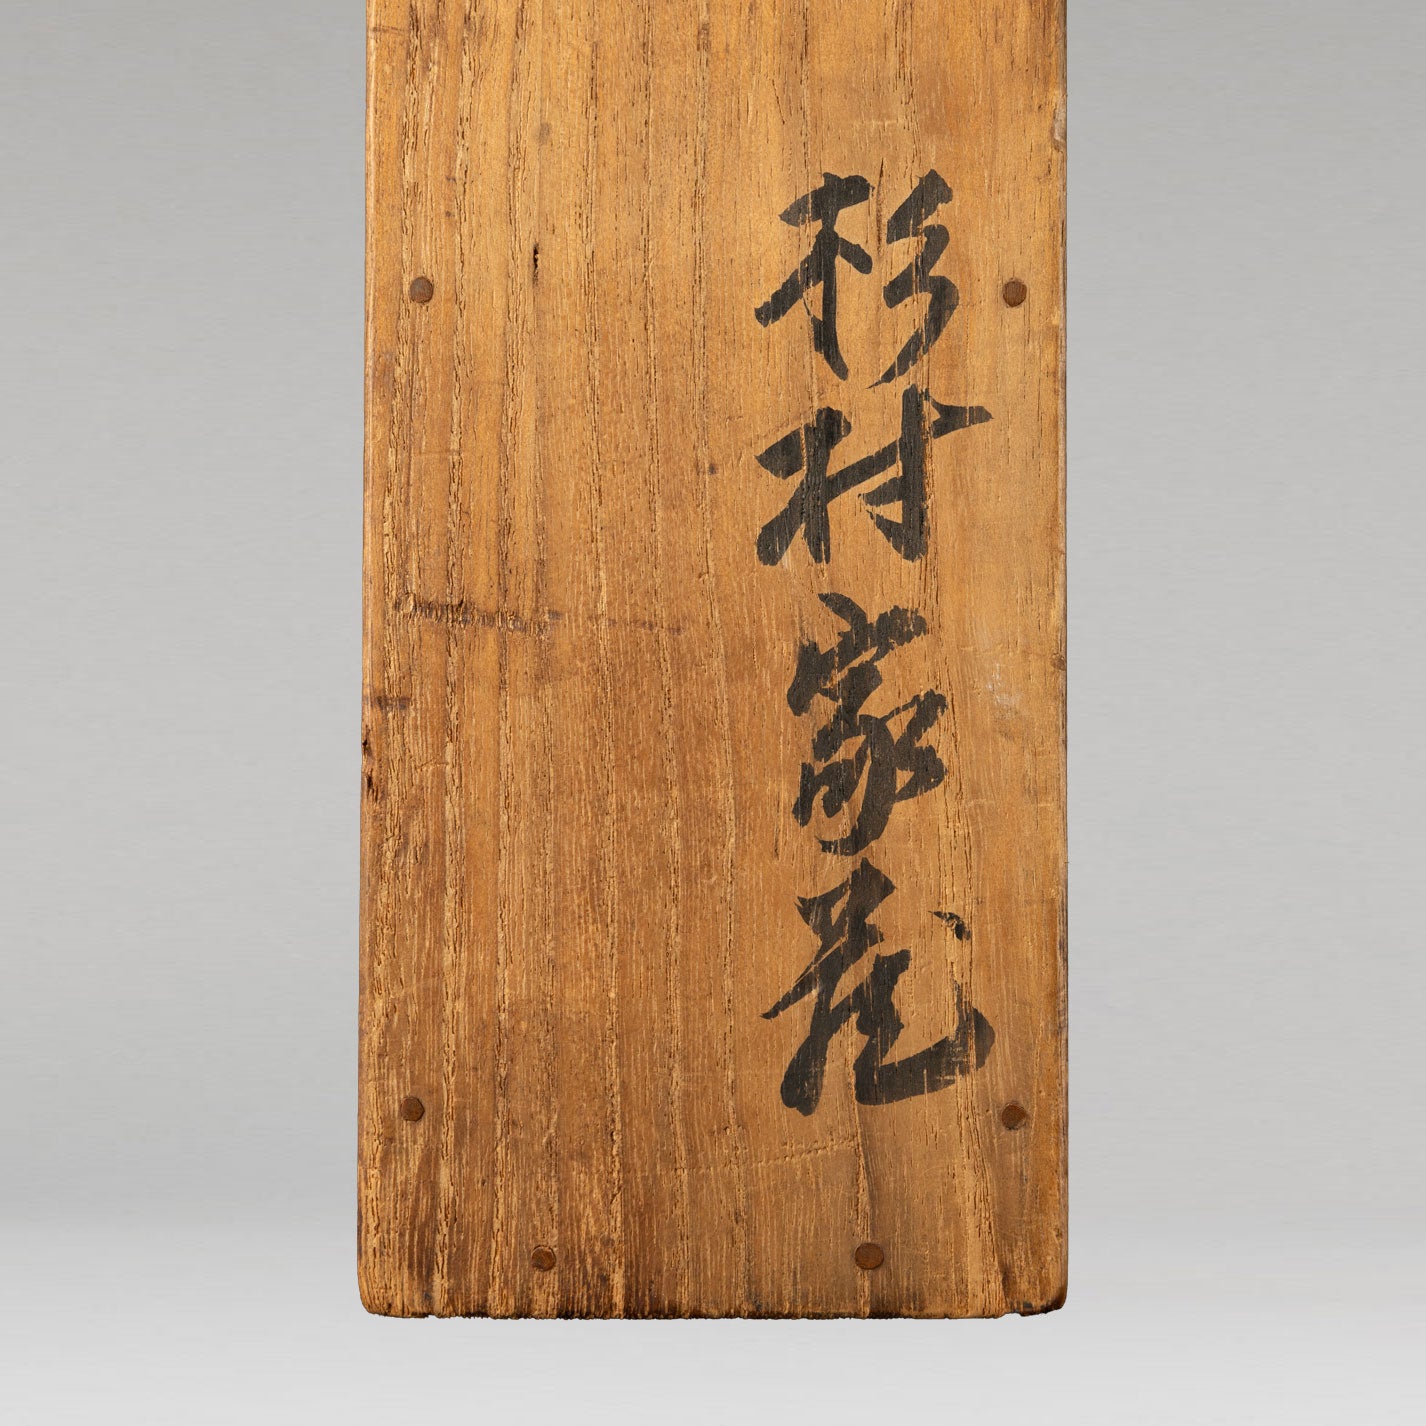 杉村家蔵